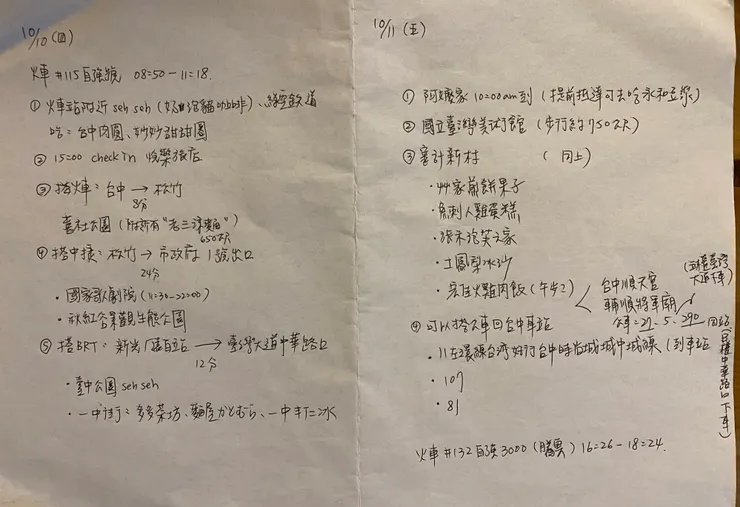 10/10 (四)
火車 #115 自強號 08:50-11:18.
① 火車站附近 seh seh (奴喵洽貓咖啡)、綠空鐵道
吃: 台中肉圓、妙妙甜甜圈
② 15:00 check in 悅樂旅店
③ 搭火車: 台中 → 松竹
8分
喜社公園 (附近有"老三涼麵")
650公尺
④ 搭中捷: 松竹 → 市政府 1號出口
24分
• 國家歌劇院 (11:30-22:00)
• 秋紅谷景觀生態公園
⑤ 搭BRT: 新光/遠百站 → 臺灣大道中華路口
12分
• 臺中公園 seh seh
• 一中街: 多多茶坊、麵屋かとむら、一中打仁冰
10/11 (五)
① 阿嬤家 10:00am到 (提前抵達可去吃永和豆漿)
② 國立臺灣美術館 (步行約750公尺)
③ 審計新村 (同上)
• 艸家煎餅果子
• 角刺人雞蛋糕
• 張禾泡芙之家
• 土鳳梨冰沙
• 宏佳火雞肉飯 (午步2)
台中順天宮
輔順將軍廟
公車: 27、5、290 回站
(五權臺灣大道下車)
(民權中華路口下車)
④ 可以搭公車回台中車站
• 11左環線台灣好行台中時尚城城中城線 (到車站
• 107
• 81
火車 #132 自強3000 (騰雲) 16:26-18:24.